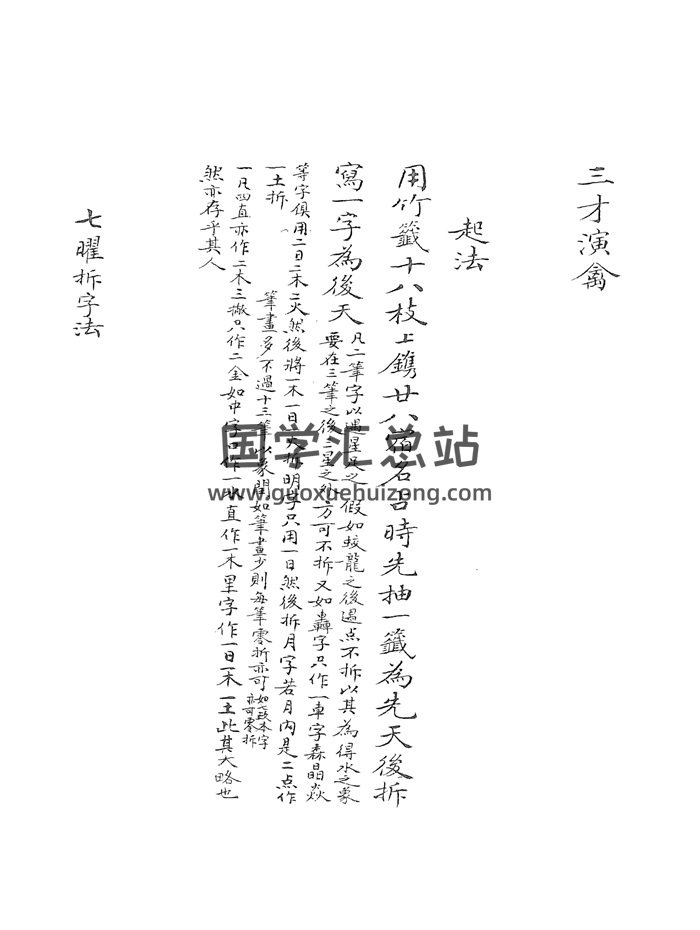 三才演禽
起法
用竹籤十八枝上鐫廿八宿名呂時先抽一籤為先天後拆
寫一字為後天
凡二筆字以遇星足之假如蛟龍之後遇点不拆以其為得水之象
要在三筆之後二星之外方可不拆又如轟字只作一車字森晶焱
等字俱用二日二木二火然後將一木一日一火拆明字只用一日然後拆月字若月內是二点作
一土拆
筆畫多不過十三筆以象閏如筆畫少則每筆零拆亦可如一 本字
亦可零拆
一凡四直亦作二木三撇只作二金如中字口作一 直作一木里字作一日一木一土此其大略也
然亦存乎其人
七曜拆字法
国学汇总站
www.guoxuehuizong.com